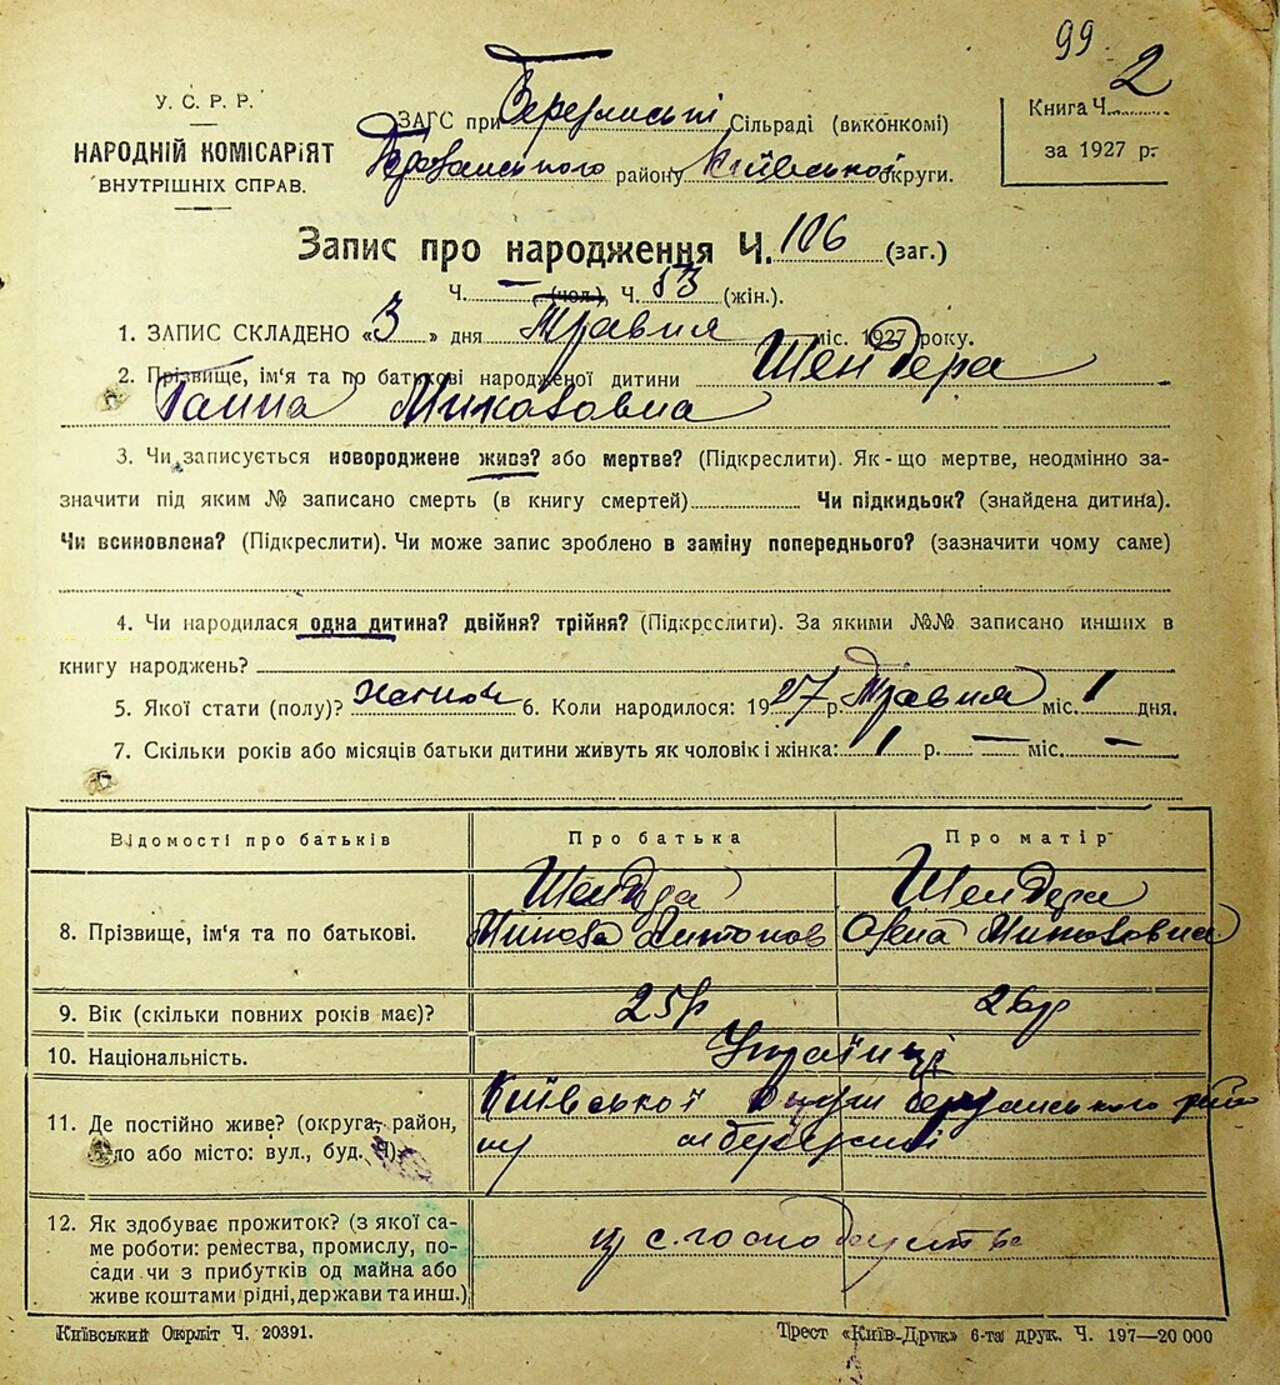 99
2
У. С. Р. Р.
НАРОДНІЙ КОМІСАРІЯТ
ВНУТРІШНІХ СПРАВ.
ЗАГС при Сільраді (виконкомі)
району Київської округи.
Книга Ч.
за 1927 р.
Запис про народження Ч. 106 (заг.)
Ч. — (чол.), Ч. 53 (жін.).
1. ЗАПИС СКЛАДЕНО «3» дня Травня міс. 1927 року.
2. Прізвище, ім'я та по батькові народженої дитини Шендера
Ганна Миколовна
3. Чи записується новороджене живе? або мертве? (Підкреслити). Як-що мертве, неодмінно за-
значити під яким № записано смерть (в книгу смертей) Чи підкидьок? (знайдена дитина).
Чи всиновлена? (Підкреслити). Чи може запис зроблено в заміну попереднього? (зазначити чому саме)
4. Чи народилася одна дитина? двійня? трійня? (Підкреслити). За якими №№ записано инших в
книгу народжень?
5. Якої стати (полу)? 6. Коли народилося: 1927 р. Травня міс. 1 дня.
7. Скільки років або місяців батьки дитини живуть як чоловік і жінка: 1 р. — міс. —
Відомості про батьків
Про батька
Про матір
8. Прізвище, ім'я та по батькові.
Шендера
Микола Антонов
Шендера
Олена Миколовна
9. Вік (скільки повних років має)?
25 р
26 р
10. Національність.
Українці
11. Де постійно живе? (округа, район,
село або місто: вул., буд. Ч).
Київської округи
12. Як здобуває прожиток? (з якої са-
ме роботи: ремества, промислу, по-
сади чи з прибутків од майна або
живе коштами рідні, держави та инш.)
з с. господарства
Київський Окрліт Ч. 20391.
Трест «Київ-Друк» 6-та друк. Ч. 197—20 000